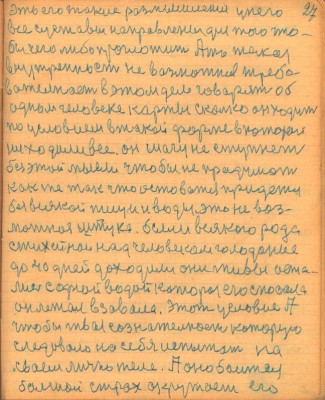 27
это его такие размышления у него
все суставы направлены для того что-
бы чего либо проглотит А то такая
внутренность не важная треба
вательная в этом деле говорят об
одном человеке карты сколко он ходит
по условием в такой форме в которой
не ходили все. он шагу не ступнет
без этой мысли чтобы не придумат
как не так что оставатся придется
без всякой пищи и воды, это не воз-
можная штука. были всякого рода
стихейное над человеком голодание
до 40 дней доходили они живы оста-
лис с одной водой которая его спосала
он летал в завала. Этот условие А
чтобы твая сознателность которую
следовало на себя испытат на
своем лично теле. А оно боится
болшой страх окружает его